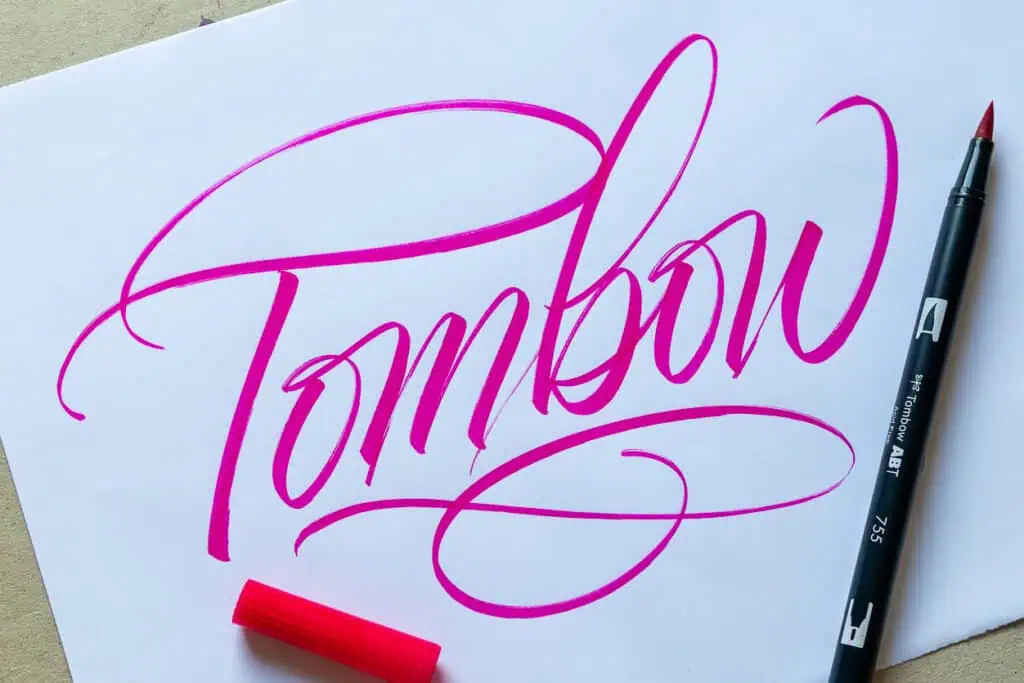 Tombow
Tombow ABT
755